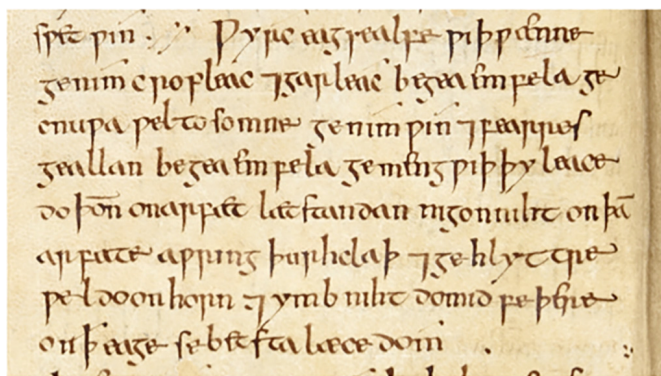 sƿet ƿin. Ƿyrc eagsealfe ƿiþ ƿænne
genim cropleac ⁊ garleac begea emfela ge
cnuƿa ƿel tosomne genim ƿin ⁊ fearres
geallan begea emfela gemeng ƿiþ þy leace
do þon̄ on arfæt læt standan nigon niht on þā
arfæte aƿring þurh claþ ⁊ gehlyttre
ƿel do on horn ⁊ ymb niht do mid feþre
on ꝥ eage se betsta læcedom